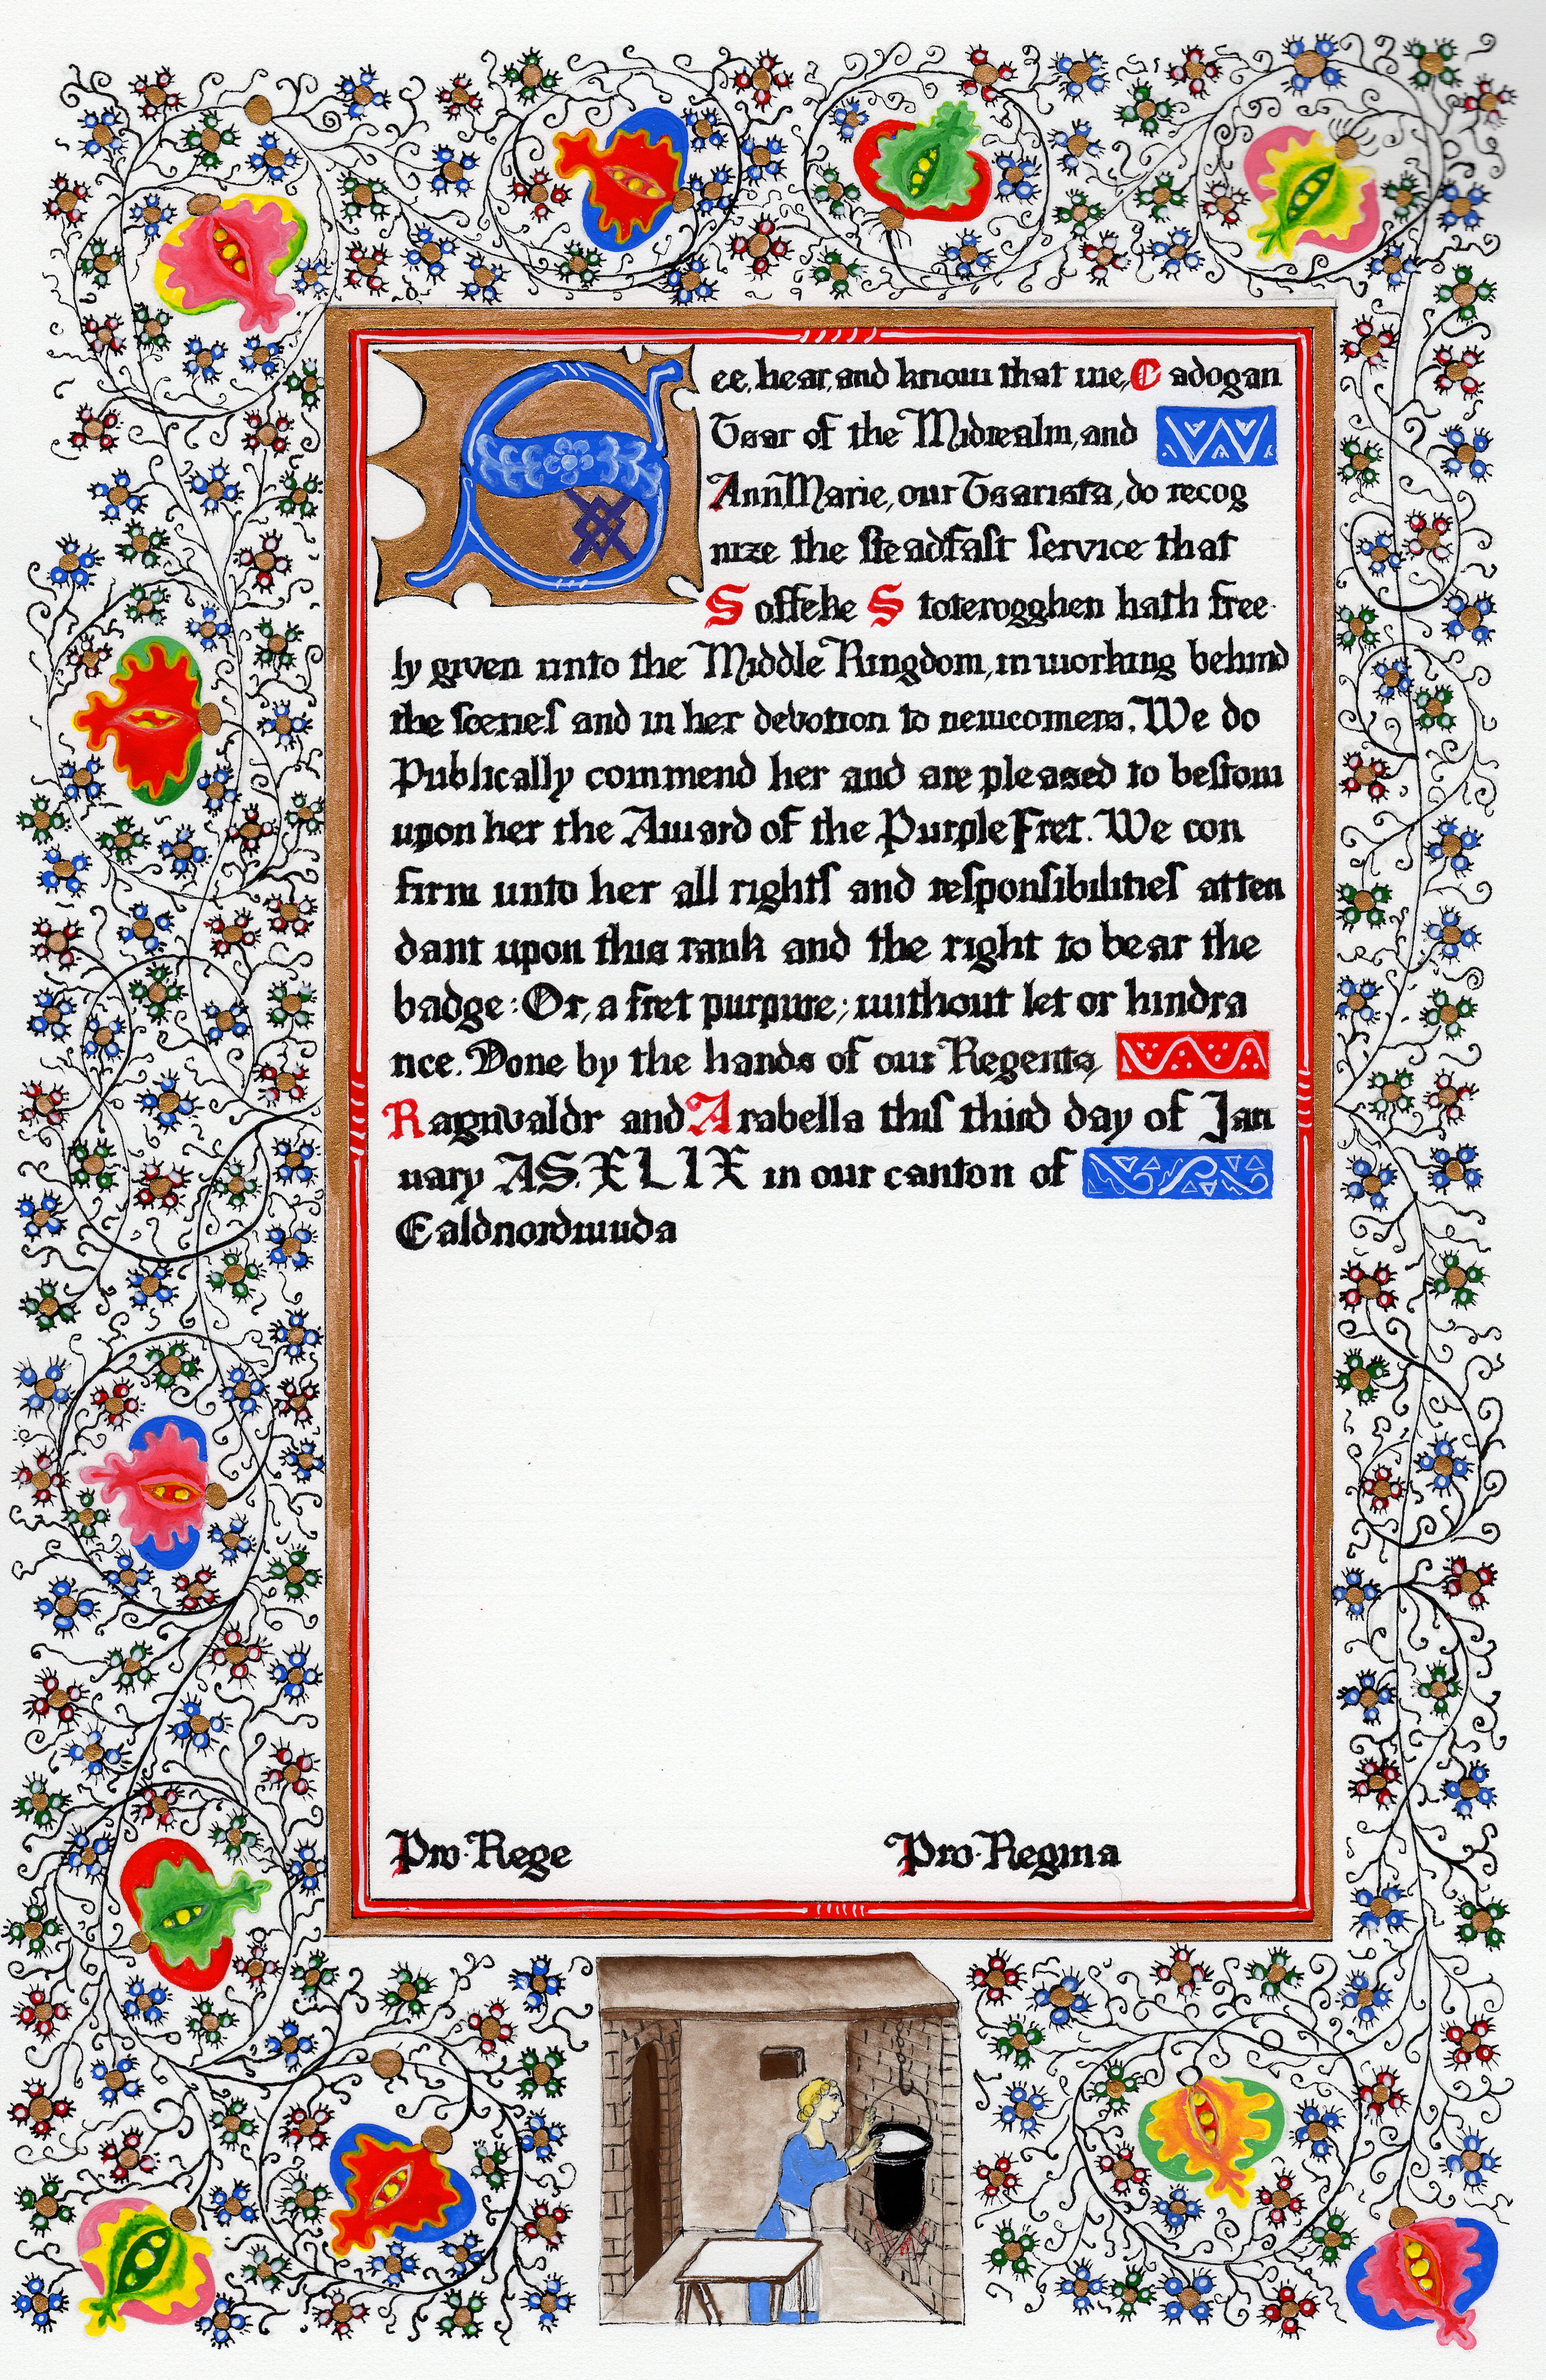 See, hear, and know that we, Cadogan
Tsar of the Midrealm, and
AnnMarie, our Tsarista, do recog
nize the steadfast service that
Soffeke Stoterogghen hath free-
ly given unto the Middle Kingdom, in working behind
the scenes and in her devotion to newcomers. We do
Publically commend her and are pleased to bestow
upon her the Award of the Purple Fret. We con
firm unto her all rights and responsibilities atten
dant upon this rank and the right to bear the
badge: Or, a fret purpure; without let or hindra
nce. Done by the hands of our Regents,
Ragnvaldr and Arabella this third day of Jan
uary AS. XLIX in our canton of
Ealdnordwuda
Pro Rege Pro Regina